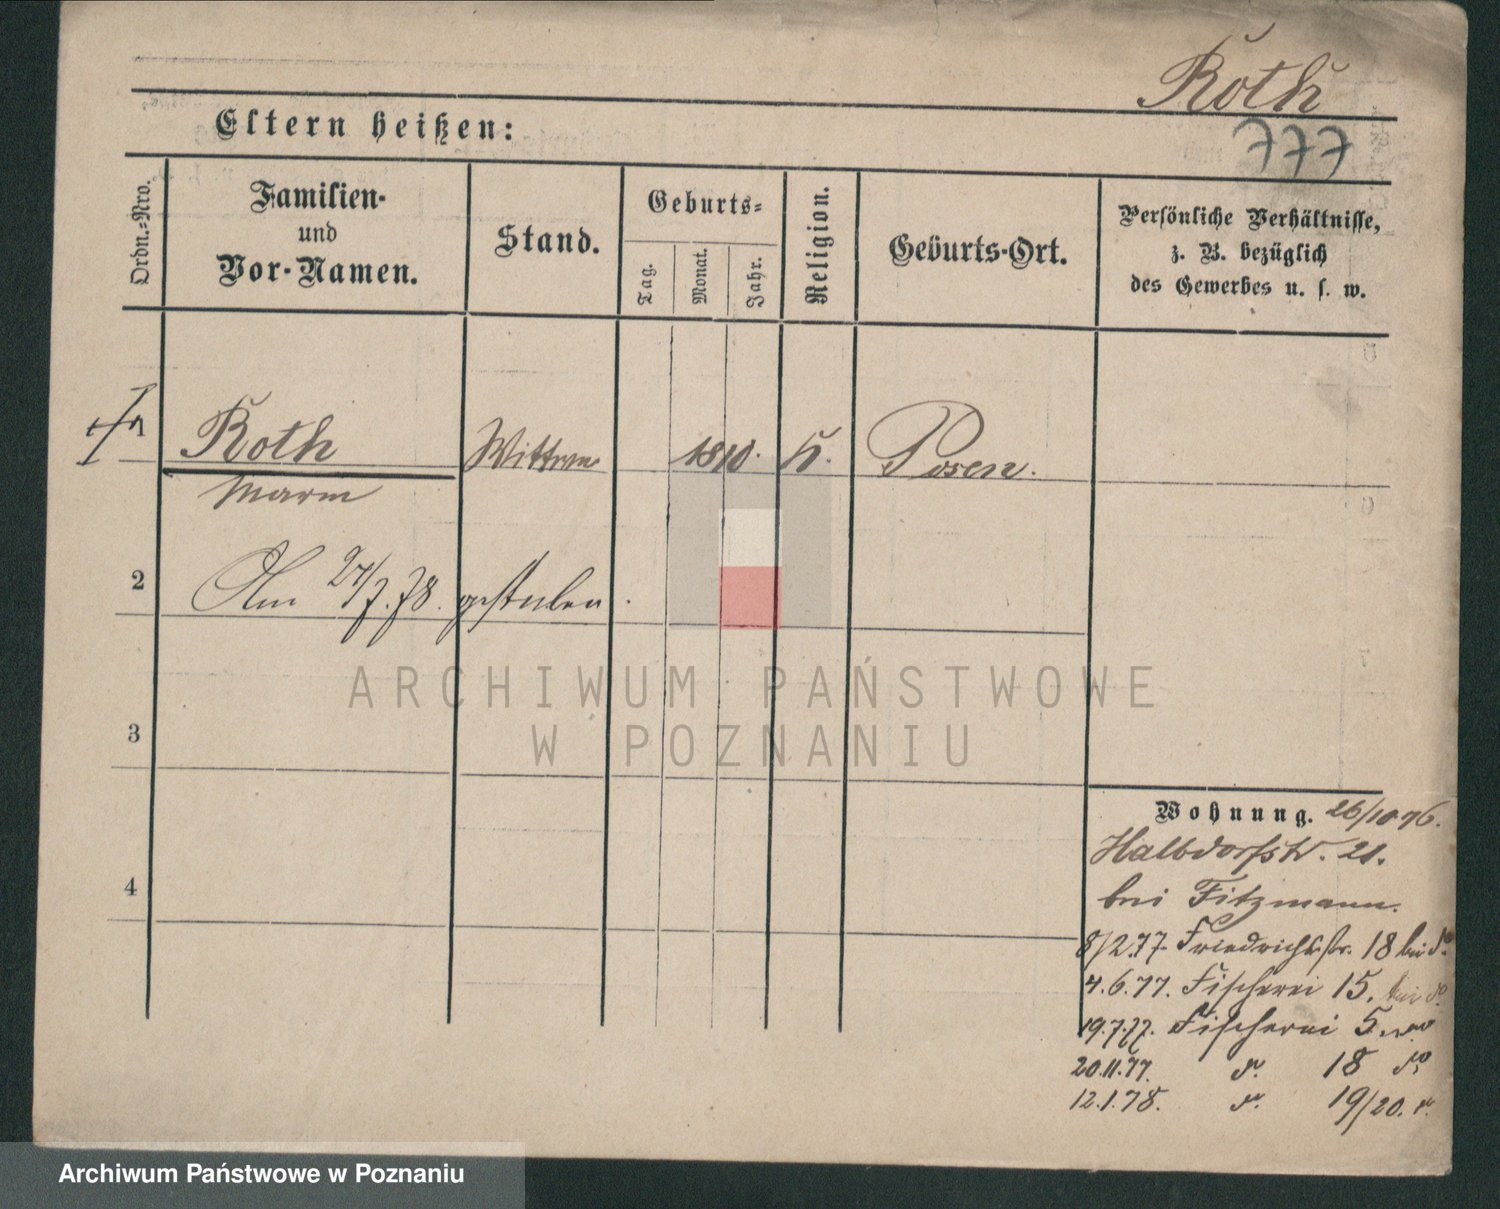 Roth
777
Eltern heißen:
Ordn.-Nro.
Familien-
und
Vor-Namen.
Stand.
Geburts-
Tag.
Monat.
Jahr.
Religion.
Geburts-Ort.
Persönliche Verhältnisse,
z. B. bezüglich
des Gewerbes u. s. w.
1 Roth Wittwe 1810. K. Posen.
Marie
2 Am 27/7.78. gestorben.
3
4
Wohnung. 26/10 76.
Halbdorfstr. 21.
bei Fitzmann.
8/2.77. Friedrichsstr. 18 bei do
4.6.77. Fischerei 15. bei do
19.7.77. Fischerei 5. do
20.11.77. do 18 do
12.1.78. do 19/20.
ARCHIWUM PAŃSTWOWE
W POZNANIU
Archiwum Państwowe w Poznaniu